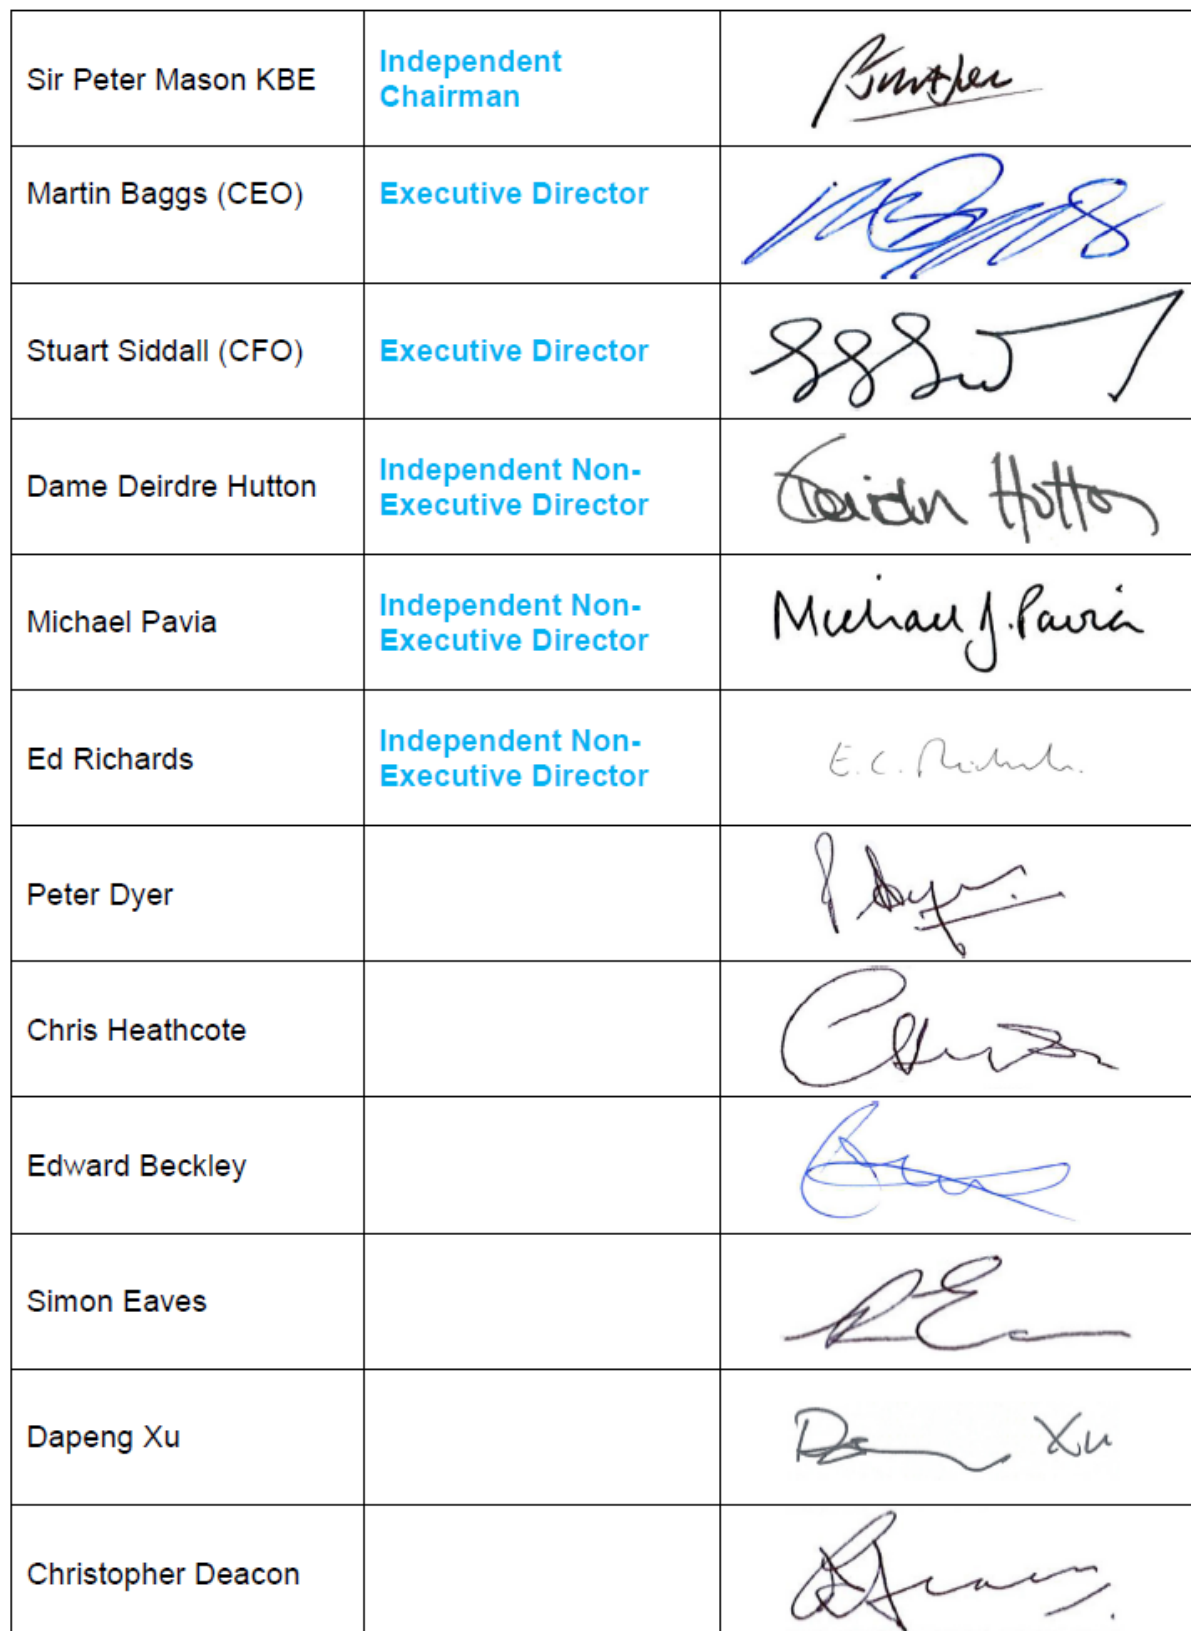 Sir Peter Mason KBE
Independent
Chairman
Martin Baggs (CEO)
Executive Director
Stuart Siddall (CFO)
Executive Director
Dame Deirdre Hutton
Independent Non-
Executive Director
Deirdre Hutton
Michael Pavia
Independent Non-
Executive Director
Michael J. Pavia
Ed Richards
Independent Non-
Executive Director
E.C. Richards.
Peter Dyer
Chris Heathcote
Edward Beckley
Simon Eaves
Dapeng Xu
Xu
Christopher Deacon